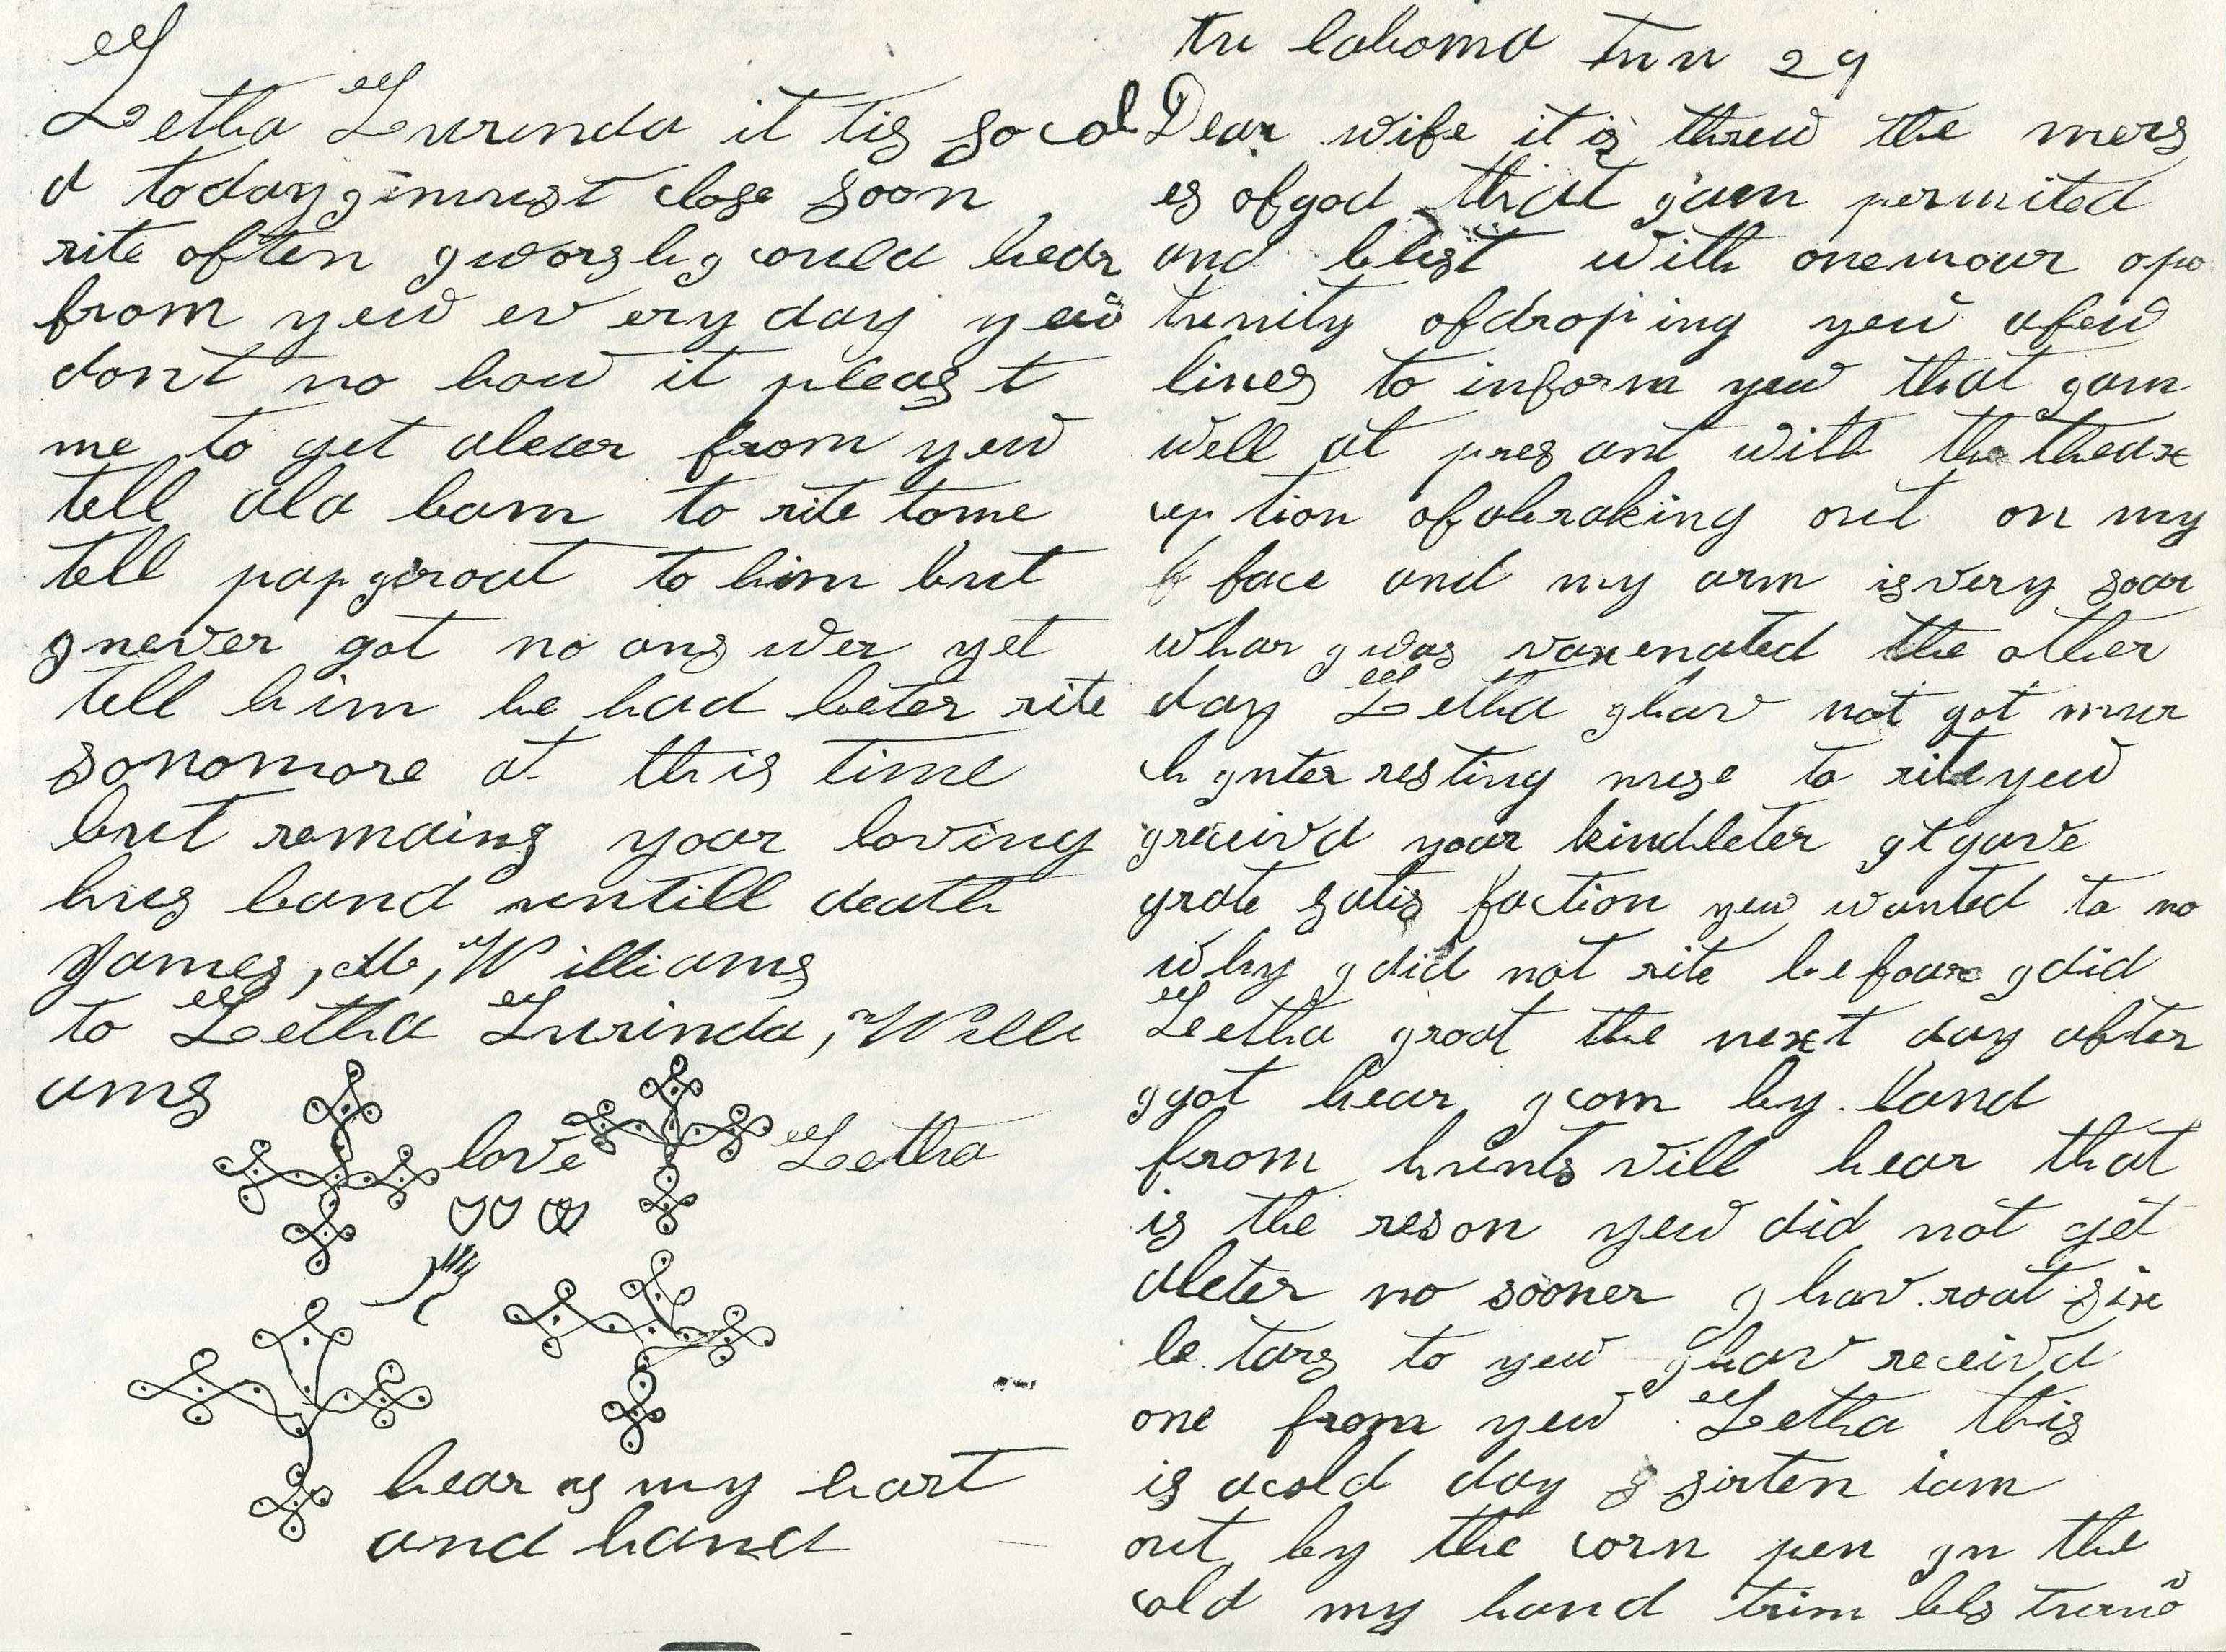 Letha Lurinda it tis so col
d today gimust close soon
rite often gworsh g could hear
from yew ev ery day yew
dont no how it pleas t
me to get aleter from yew
tell ala bam to rite tome
tell pap giroat to him but
gnever got no ans wer yet
tell him he had beter rite
sonomore at this time
but remains your loving
hus band untill death
James, M, Williams
to Letha Lurinda, Willi
ams
love Letha
hear is my hart
and hand
tu lahoma Jun 29
Dear wife it is threw the mers
es ofgod that gam permited
and blist with onemour opo
tunity ofdroping yew afew
lines to inform yew that gam
well at pres ant with the theax
cep tion ofabraking out on my
face and my arm isvery soar
whar gwas vaxenated the other
day Letha ghav not got mur
ch gnterresting nuse to riteyew
greceivd your kindleter gtgave
grate satis faction yew wanted to no
why gdid not rite befoar gdid
Letha groat the next day after
ggot hear gcom by land
from hunts vill hear that
is the reson yew did not get
aleter no sooner g hav roat six
le tars to yew ghav receivd
one from yew Letha this
is acold day g sirten iam
out by the corn pen gn the
cold my hand trim bls turno